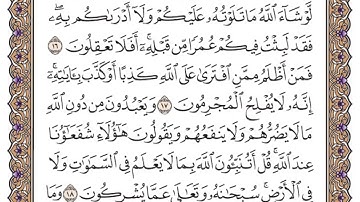 لَّوْ شَآءَ ٱللَّهُ مَا تَلَوْتُهُۥ عَلَيْكُمْ وَلَآ أَدْرَىٰكُم بِهِۦ ۖ
فَقَدْ لَبِثْتُ فِيكُمْ عُمُرًا مِّن قَبْلِهِۦٓ ۚ أَفَلَا تَعْقِلُونَ ١٦
فَمَنْ أَظْلَمُ مِمَّنِ ٱفْتَرَىٰ عَلَى ٱللَّهِ كَذِبًا أَوْ كَذَّبَ بِـَٔايَـٰتِهِۦٓ ۚ
إِنَّهُۥ لَا يُفْلِحُ ٱلْمُجْرِمُونَ ١٧ وَيَعْبُدُونَ مِن دُونِ ٱللَّهِ
مَا لَا يَضُرُّهُمْ وَلَا يَنفَعُهُمْ وَيَقُولُونَ هَـٰٓؤُلَآءِ شُفَعَـٰٓؤُنَا
عِندَ ٱللَّهِ ۚ قُلْ أَتُنَبِّـُٔونَ ٱللَّهَ بِمَا لَا يَعْلَمُ فِى ٱلسَّمَـٰوَٰتِ وَلَا
فِى ٱلْأَرْضِ ۚ سُبْحَـٰنَهُۥ وَتَعَـٰلَىٰ عَمَّا يُشْرِكُونَ ١٨ وَمَا